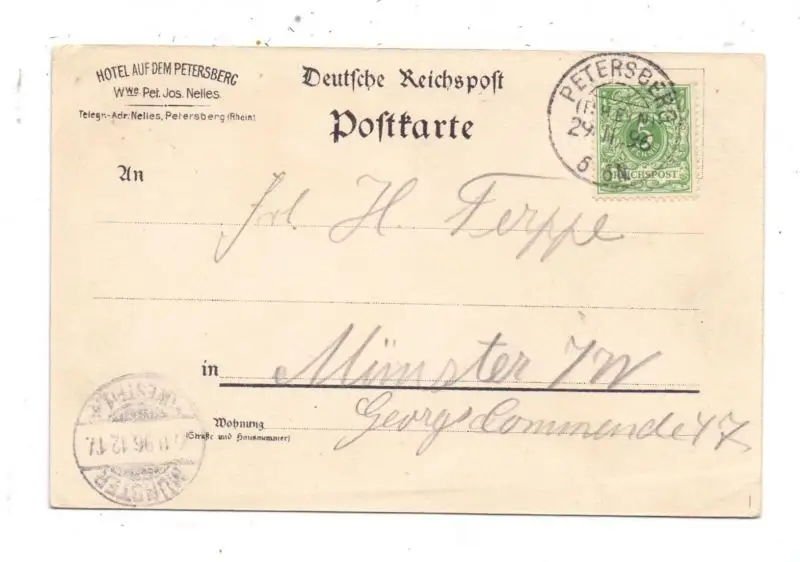 HOTEL AUF DEM PETERSBERG
Wwe. Pet. Jos. Nelles.
Telegr.-Adr: Nelles, Petersberg (Rhein)
Deutsche Reichspost
Postkarte
PETERSBERG
(RHEIN)
29. 11. 96
5-6N
5
REICHSPOST
An
Frl H Terppe
in Münster I/W
Wohnung
(Straße und Hausnummer)
Georgs Commende 47
MÜNSTER
11 96 12-1V.
(WESTF)